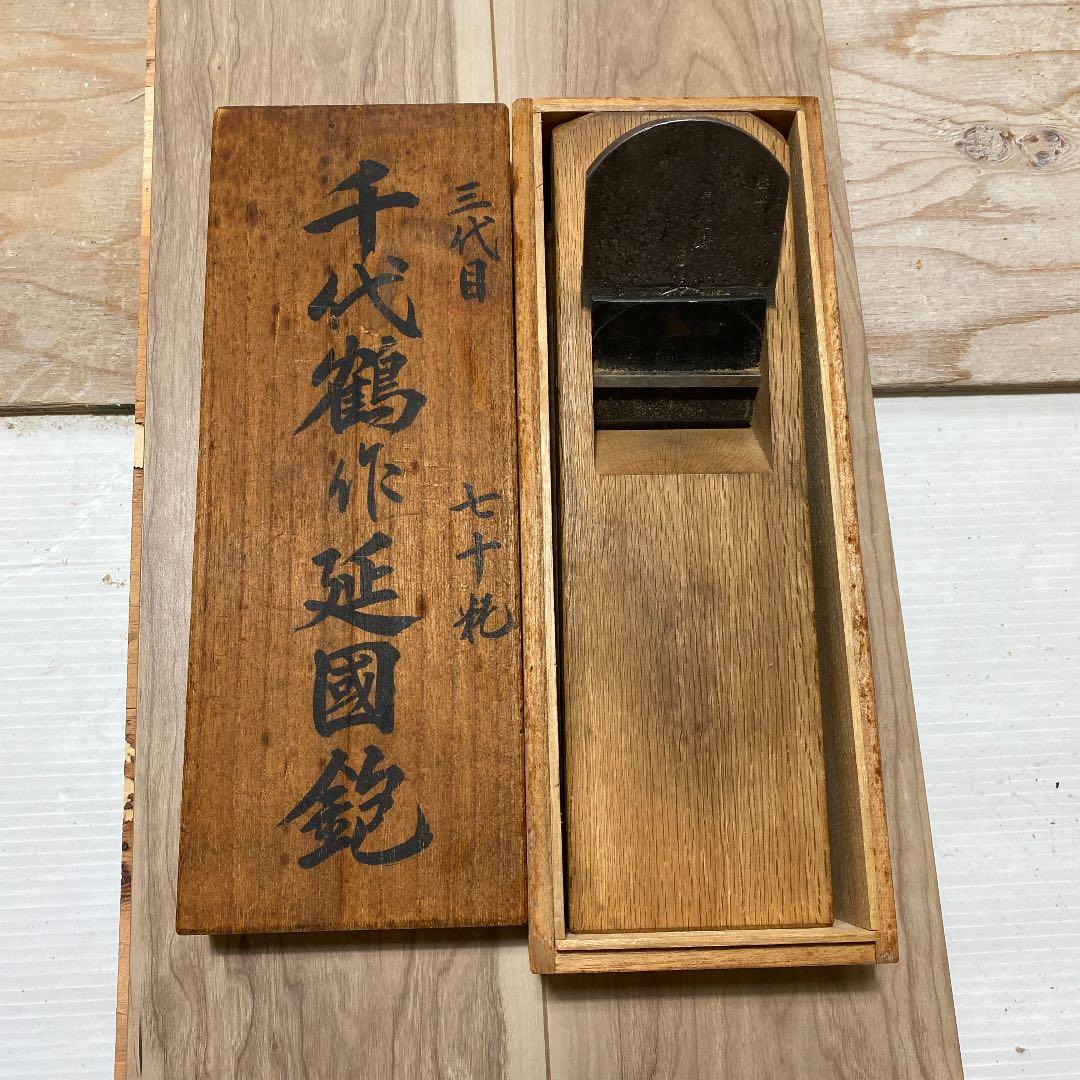 三代目 七十粍
千代鶴作延國鉋